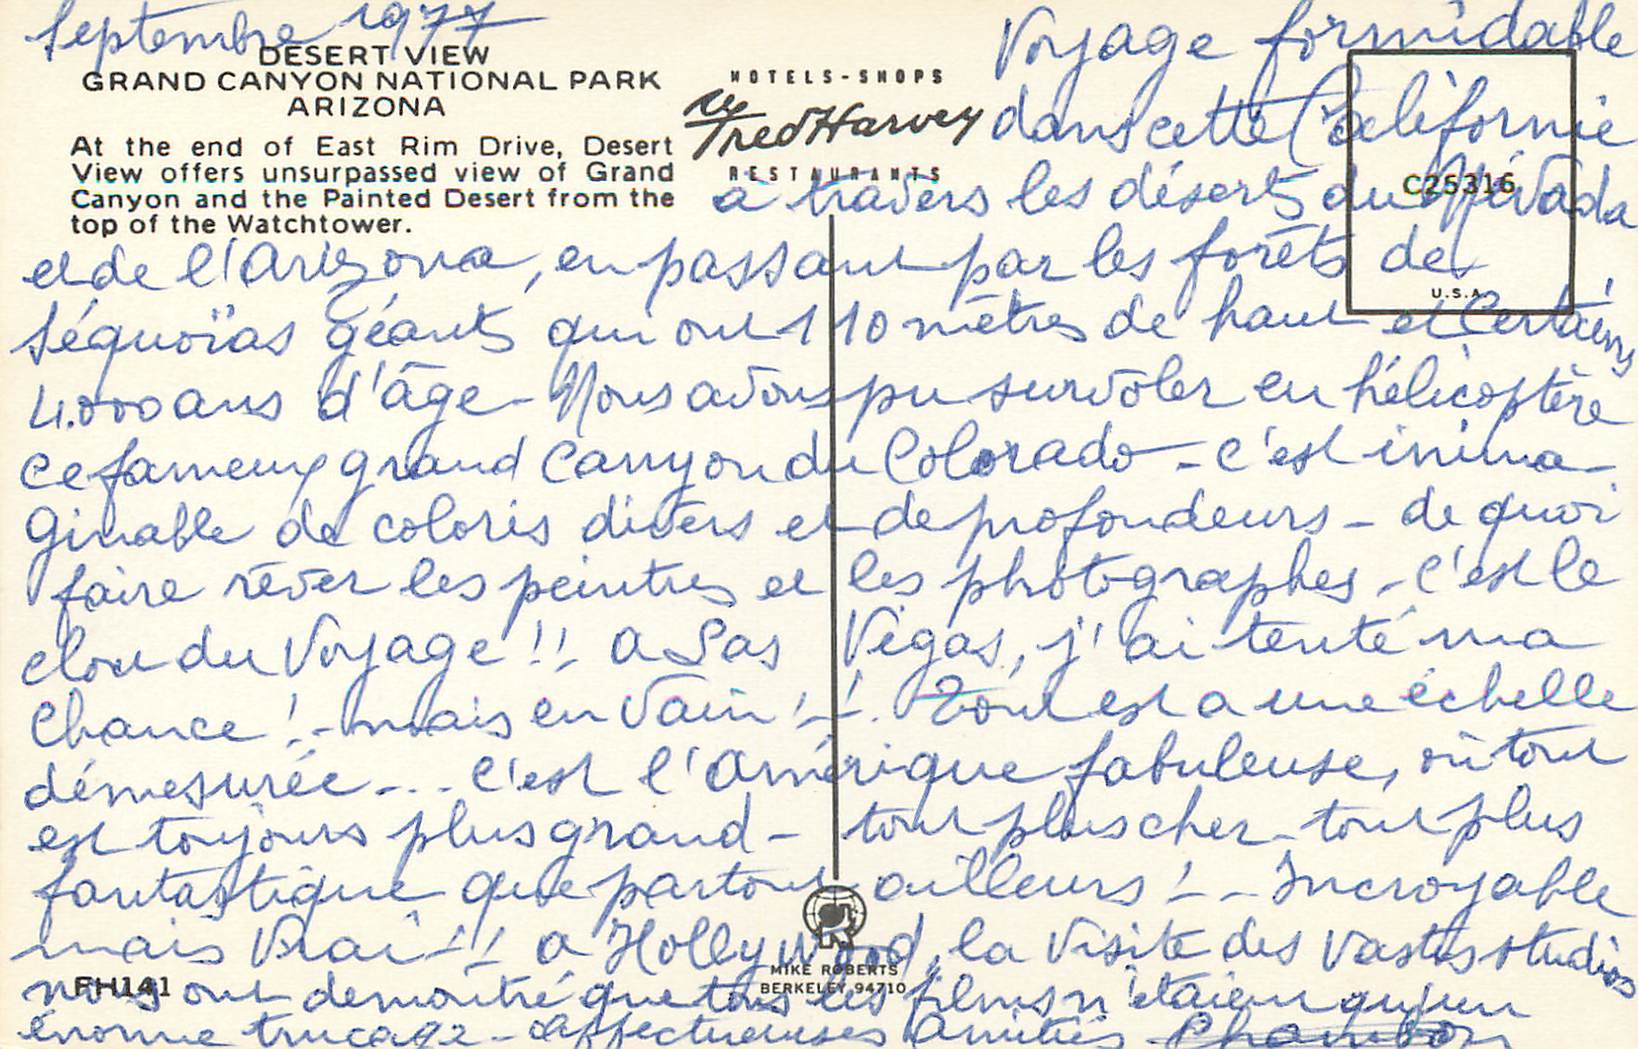 Septembre 1977
DESERT VIEW
GRAND CANYON NATIONAL PARK
ARIZONA
At the end of East Rim Drive, Desert
View offers unsurpassed view of Grand
Canyon and the Painted Desert from the
top of the Watchtower.
HOTELS-SHOPS
Fred Harvey
RESTAURANTS
C25316
U.S.A.
Voyage formidable
dans cette Californie
à travers les déserts du Névada
et de l'Arizona, en passant par les forêts de
séquoïas géants qui ont 110 mètres de haut et certains
4.000 ans d'âge - Nous avons pu survoler en hélicoptère
ce fameux grand Canyon du Colorado - c'est inima-
ginable de coloris divers et de profondeurs - de quoi
faire rêver les peintres et les photographes - c'est le
clou du Voyage !! A Las Vegas, j'ai tenté ma
chance !- mais en vain !-!. Tout est a une échelle
démesurée... c'est l'Amérique fabuleuse, où tout
est toujours plus grand - tout plus cher - tout plus
fantastique que partout ailleurs ! -- Incroyable
mais vrai !! a Hollywood, la visite des vastes studios
nous ont démontré que tous les films n'étaient qu'un
énorme trucage - affectueuses amitiés Chambon
FH141
MIKE ROBERTS
BERKELEY 94710